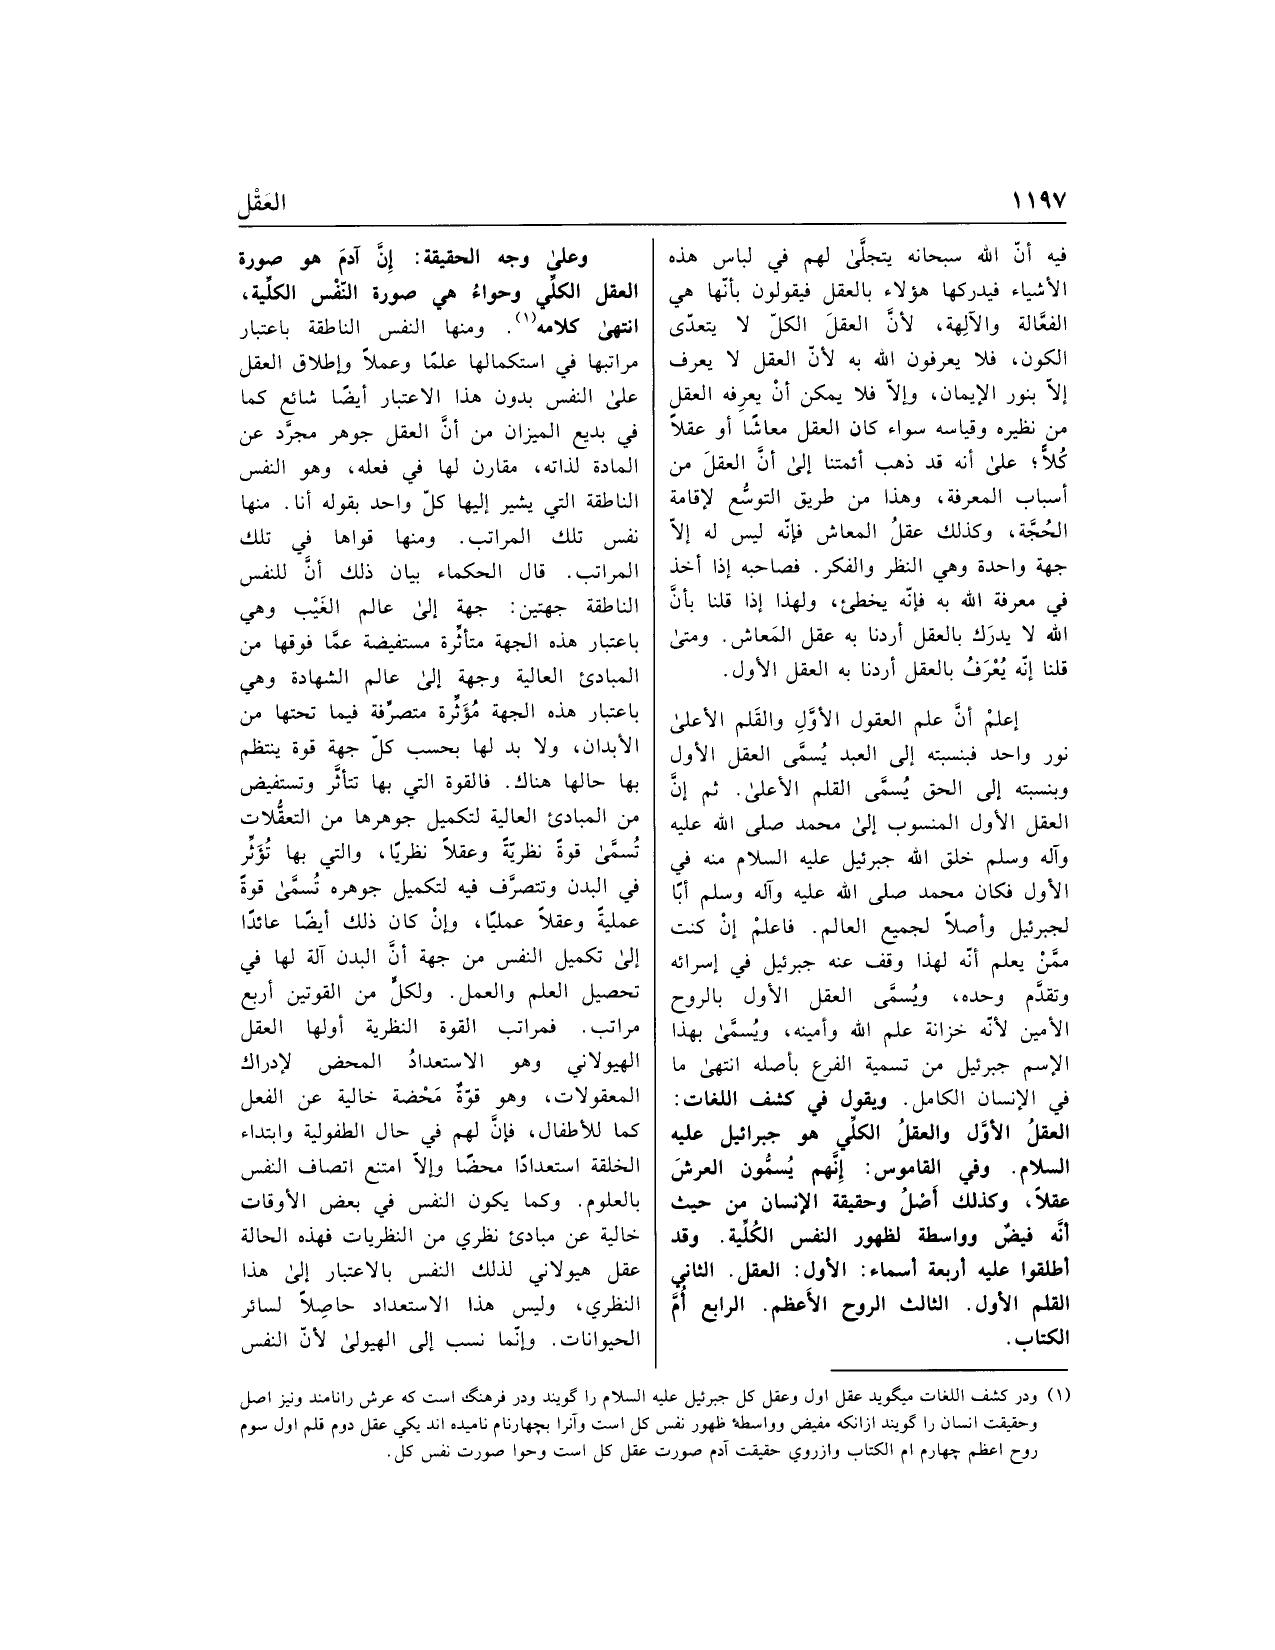 ١١٩٧
العَقْل
فيه أنّ الله سبحانه يتجلَّىٰ لهم في لباس هذه
الأشياء فيدركها هؤلاء بالعقل فيقولون بأنّها هي
الفعَّالة والآلِهة، لأنَّ العقلَ الكلّ لا يتعدّى
الكون، فلا يعرفون الله به لأنّ العقل لا يعرف
إلاّ بنور الإيمان، وإلاّ فلا يمكن أنْ يعرِفه العقل
من نظيره وقياسه سواء كان العقل معاشًا أو عقلاً
كُلاًّ؛ علىٰ أنه قد ذهب أئمتنا إلىٰ أنَّ العقلَ من
أسباب المعرفة، وهذا من طريق التوسُّع لإقامة
الحُجَّة، وكذلك عقلُ المعاش فإنّه ليس له إلاّ
جهة واحدة وهي النظر والفكر. فصاحبه إذا أخذ
في معرفة الله به فإنّه يخطئ، ولهذا إذا قلنا بأنَّ
الله لا يدرَك بالعقل أردنا به عقل المَعاش. ومتىٰ
قلنا إنّه يُعْرَفُ بالعقل أردنا به العقل الأول.
إعلمْ أنَّ علم العقول الأوَّلِ والقَلم الأعلىٰ
نور واحد فبنسبته إلى العبد يُسمَّى العقل الأول
وبنسبته إلى الحق يُسمَّى القلم الأعلىٰ. ثم إنَّ
العقل الأول المنسوب إلىٰ محمد صلى الله عليه
وآله وسلم خلق الله جبرئيل عليه السلام منه في
الأول فكان محمد صلى الله عليه وآله وسلم أبًا
لجبرئيل وأصلاً لجميع العالم. فاعلمْ إنْ كنت
ممَّنْ يعلم أنّه لهذا وقف عنه جبرئيل في إسرائه
وتقدَّم وحده، ويُسمَّى العقل الأول بالروح
الأمين لأنّه خزانة علم الله وأمينه، ويُسمَّىٰ بهذا
الإسم جبرئيل من تسمية الفرع بأصله انتهىٰ ما
في الإنسان الكامل. ويقول في كشف اللغات:
العقلُ الأوَّل والعقلُ الكلِّي هو جبرائيل عليه
السلام. وفي القاموس: إنَّهم يُسمُّون العرشَ
عقلاً، وكذلك أَصْلُ وحقيقة الإنسان من حيث
أنَّه فيضٌ وواسطة لظهور النفس الكُلِّية. وقد
أطلقوا عليه أربعة أسماء: الأول: العقل. الثاني
القلم الأول. الثالث الروح الأَعظم. الرابع أُمَّ
الكتاب.
وعلىٰ وجه الحقيقة: إنَّ آدمَ هو صورة
العقل الكلِّي وحواءُ هي صورة النّفْس الكلِّية،
انتهىٰ كلامه(١). ومنها النفس الناطقة باعتبار
مراتبها في استكمالها علمًا وعملاً وإطلاق العقل
علىٰ النفس بدون هذا الاعتبار أيضًا شائع كما
في بديع الميزان من أنَّ العقل جوهر مجرَّد عن
المادة لذاته، مقارن لها في فعله، وهو النفس
الناطقة التي يشير إليها كلّ واحد بقوله أنا. منها
نفس تلك المراتب. ومنها قواها في تلك
المراتب. قال الحكماء بيان ذلك أنَّ للنفس
الناطقة جهتين: جهة إلىٰ عالم الغَيْب وهي
باعتبار هذه الجهة متأثِّرة مستفيضة عمَّا فوقها من
المبادئ العالية وجهة إلىٰ عالم الشهادة وهي
باعتبار هذه الجهة مُؤَثِّرة متصرِّفة فيما تحتها من
الأبدان، ولا بد لها بحسب كلّ جهة قوة ينتظم
بها حالها هناك. فالقوة التي بها تتأثَّر وتستفيض
من المبادئ العالية لتكميل جوهرها من التعقُّلات
تُسمَّىٰ قوةً نظريّةً وعقلاً نظريًا، والتي بها تُؤَثِّر
في البدن وتتصرَّف فيه لتكميل جوهره تُسمَّى قوةً
عمليةً وعقلاً عمليًا، وإنْ كان ذلك أيضًا عائدًا
إلىٰ تكميل النفس من جهة أنَّ البدن آلة لها في
تحصيل العلم والعمل. ولكلٍّ من القوتين أربع
مراتب. فمراتب القوة النظرية أولها العقل
الهيولاني وهو الاستعدادُ المحض لإدراك
المعقولات، وهو قوّةٌ مَحْضة خالية عن الفعل
كما للأطفال، فإنَّ لهم في حال الطفولية وابتداء
الخلقة استعدادًا محضًا وإلاّ امتنع اتصاف النفس
بالعلوم. وكما يكون النفس في بعض الأوقات
خالية عن مبادئ نظري من النظريات فهذه الحالة
عقل هيولاني لذلك النفس بالاعتبار إلىٰ هذا
النظري، وليس هذا الاستعداد حاصِلاً لسائر
الحيوانات. وإنّما نسب إلى الهيولىٰ لأنّ النفس
(١) ودر كشف اللغات ميگويد عقل اول وعقل كل جبرئيل عليه السلام را گويند ودر فرهنگ است كه عرش رانامند ونيز اصل
وحقيقت انسان را گويند ازانكه مفيض وواسطهٔ ظهور نفس كل است وآنرا بچهارنام ناميده اند يكي عقل دوم قلم اول سوم
روح اعظم چهارم ام الكتاب وازروي حقيقت آدم صورت عقل كل است وحوا صورت نفس كل.